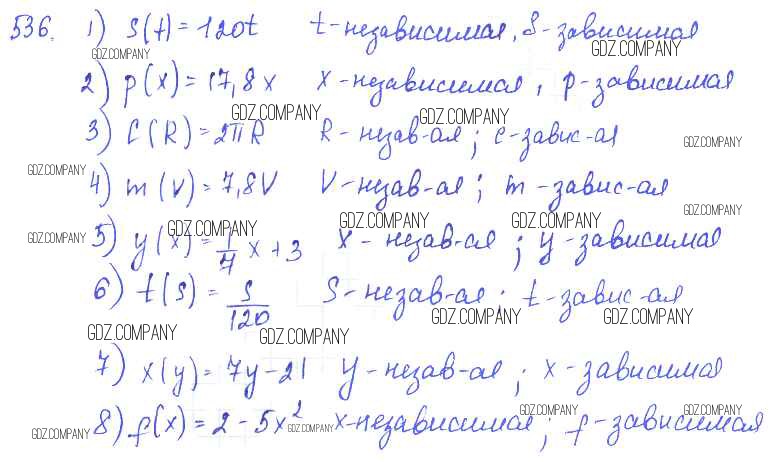 536. 1) s(t)=120t t-независимая, s-зависимая
GDZ.COMPANY GDZ.COMPANY
2) p(x)=17,8x x-независимая, p-зависимая
GDZ.COMPANY GDZ.COMPANY
3) C(R)=2πR R-незав-ая; c-завис-ая
GDZ.COMPANY
GDZ.COMPANY
4) m(V)=7,8V V-незав-ая; m-завис-ая
GDZ.COMPANY
GDZ.COMPANY GDZ.COMPANY GDZ.COMPANY
GDZ.COMPANY
5) y(x)=1/7 x+3 x-незав-ая; y-зависимая
6) t(s)=s/120 s-незав-ая; t-завис-ая
GDZ.COMPANY GDZ.COMPANY
GDZ.COMPANY GDZ.COMPANY
7) x(y)=7y-21 y-незав-ая; x-зависимая
GDZ.COMPANY GDZ.COMPANY
8) f(x)=2-5x² x-независимая; f-зависимая
GDZ.COMPANY GDZ.COMPANY